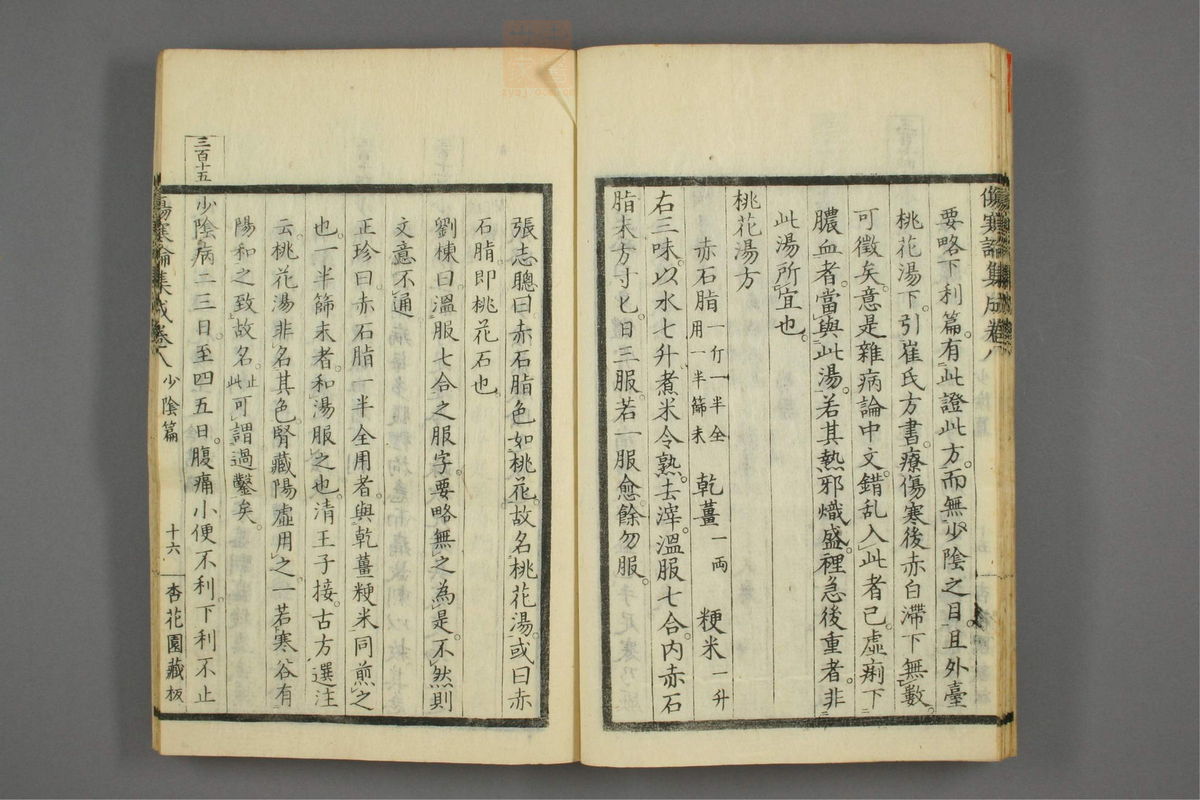 傷寒論集成卷八
要略下利篇有此證此方而無少陰之目且外臺
桃花湯下引崔氏方書療傷寒後赤白滯下無數
可徵矣意是雜病論中文錯乱入此者已虛痢下
膿血者當與此湯若其熱邪熾盛裡急後重者非
此湯所宜也
桃花湯方
赤石脂一斤一半全用一半篩末 乾薑一両 粳米一升
右三味以水七升煮米令熟去滓溫服七合內赤石
脂末方寸匕日三服若一服愈餘勿服
張志聰曰赤石脂色如桃花故名桃花湯或曰赤
石脂即桃花石也
劉棟曰溫服七合之服字要略無之為是不然則
文意不通
正珍曰赤石脂一半全用者與乾薑粳米同煎之
也一半篩末者和湯服之也清王子接古方選注
云桃花湯非名其色腎藏陽虛用之一若寒谷有
陽和之致故名止此可謂過鑿矣
三百十五
少陰病二三日至四五日腹痛小便不利下利不止
傷寒論集成卷八 少陰篇 十六 杏花園藏板